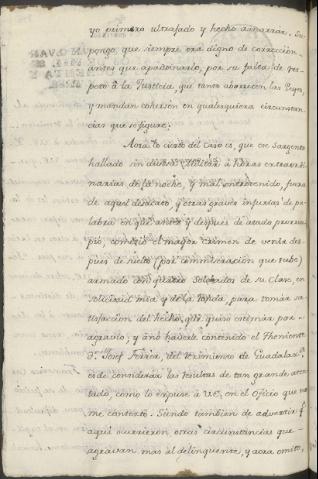 yo primero ultrajado y hecho amarrar. Su-
pongo, que siempre era digno de correccion
antes que apadrinarlo, por su falta de res-
peto à la Justicia, que tanto aborrecen las Leyes,
y mandan cohersion en qualesquiera circunstan-
cias que se figure.
Aora lo cierto del caso es, que ese Sargento
hallado sin divisa Militar à horas extraor-
dinarias de la noche, y mal entretenido, fuera
de aquel desacato, y otras graves injurias de pa-
labra en que antes y despues de atado prorrum-
pió, cometió el mayor crimen de venir des-
pues de suelto (por conmiseracion que tube)
armado con quatro Soldados de su Clase, en
solicitud mia y de la ronda, para tomar sa-
tisfaccion del hecho, que quiso estimar por
agravio; y à no haverle contenido el Theniente
Dn. Josef Ferrer, del Regimiento de Guadalaxa
es de considerar las resultas de tan grande aten-
tado, como lo expuse à VE, en el Oficio que
me contextó. Siendo tambien de advertir q.
aqui ocurrieron otras circunstancias que
agravan mas al delinquente, y aora omito,